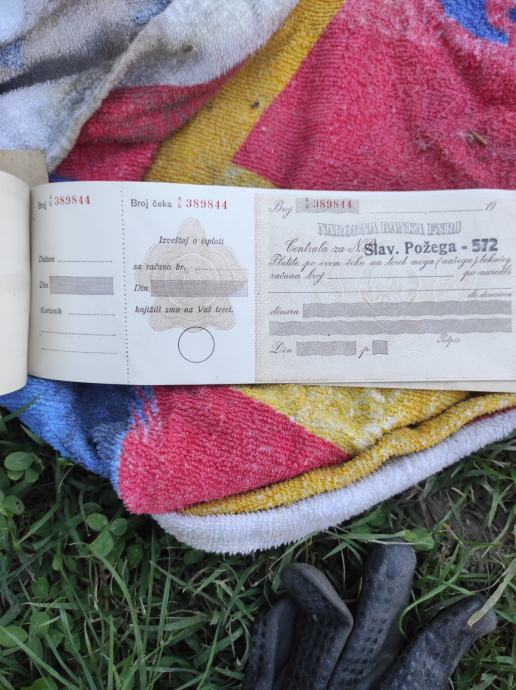 Broj A/E 389844
Datum
Din
Korisnik
Broj čeka A/E 389844
Izveštaj o isplati
sa računa br.
Din
knjižili smo na Vaš teret.
Broj A/E 389844 19
NARODNA BANKA FNRJ
Centrala za N Slav. Požega - 572
Platite po ovom čeku na teret moga (našega) tekućeg
računa broj po naredbi
ili donosiocu
dinara
Potpis
Din p